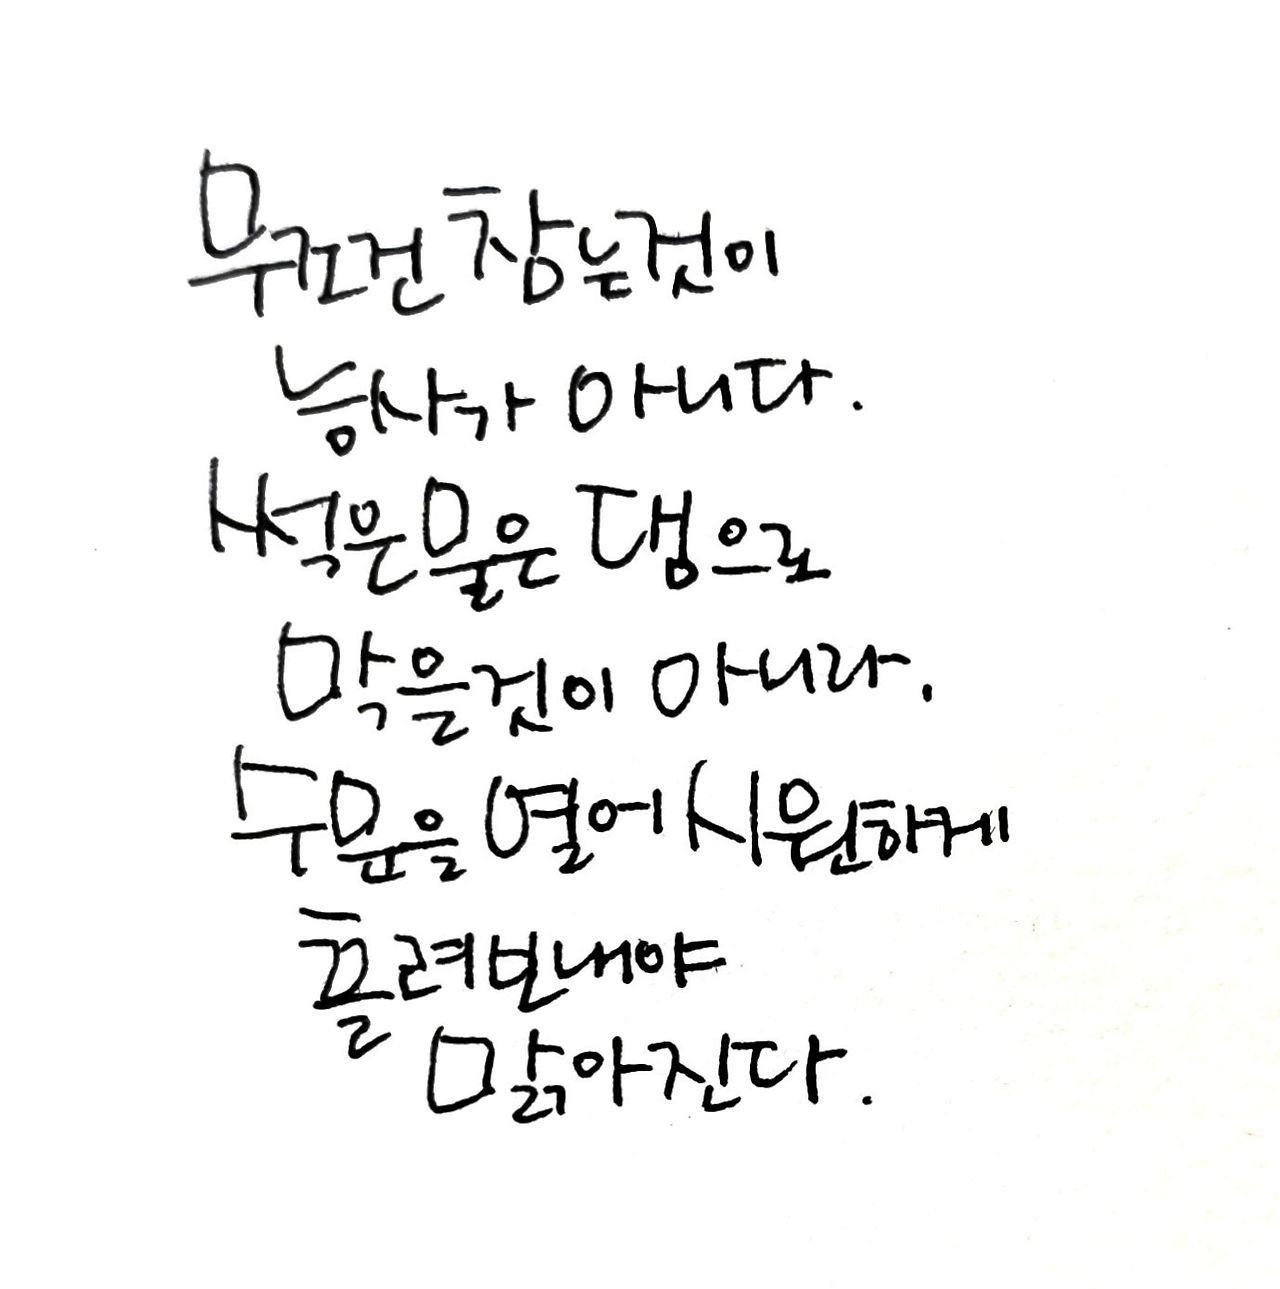 무조건 참는것이
능사가 아니다.
썩은물은 댐으로
막을것이 아니라.
수문을 열어 시원하게
흘려보내야
맑아진다.